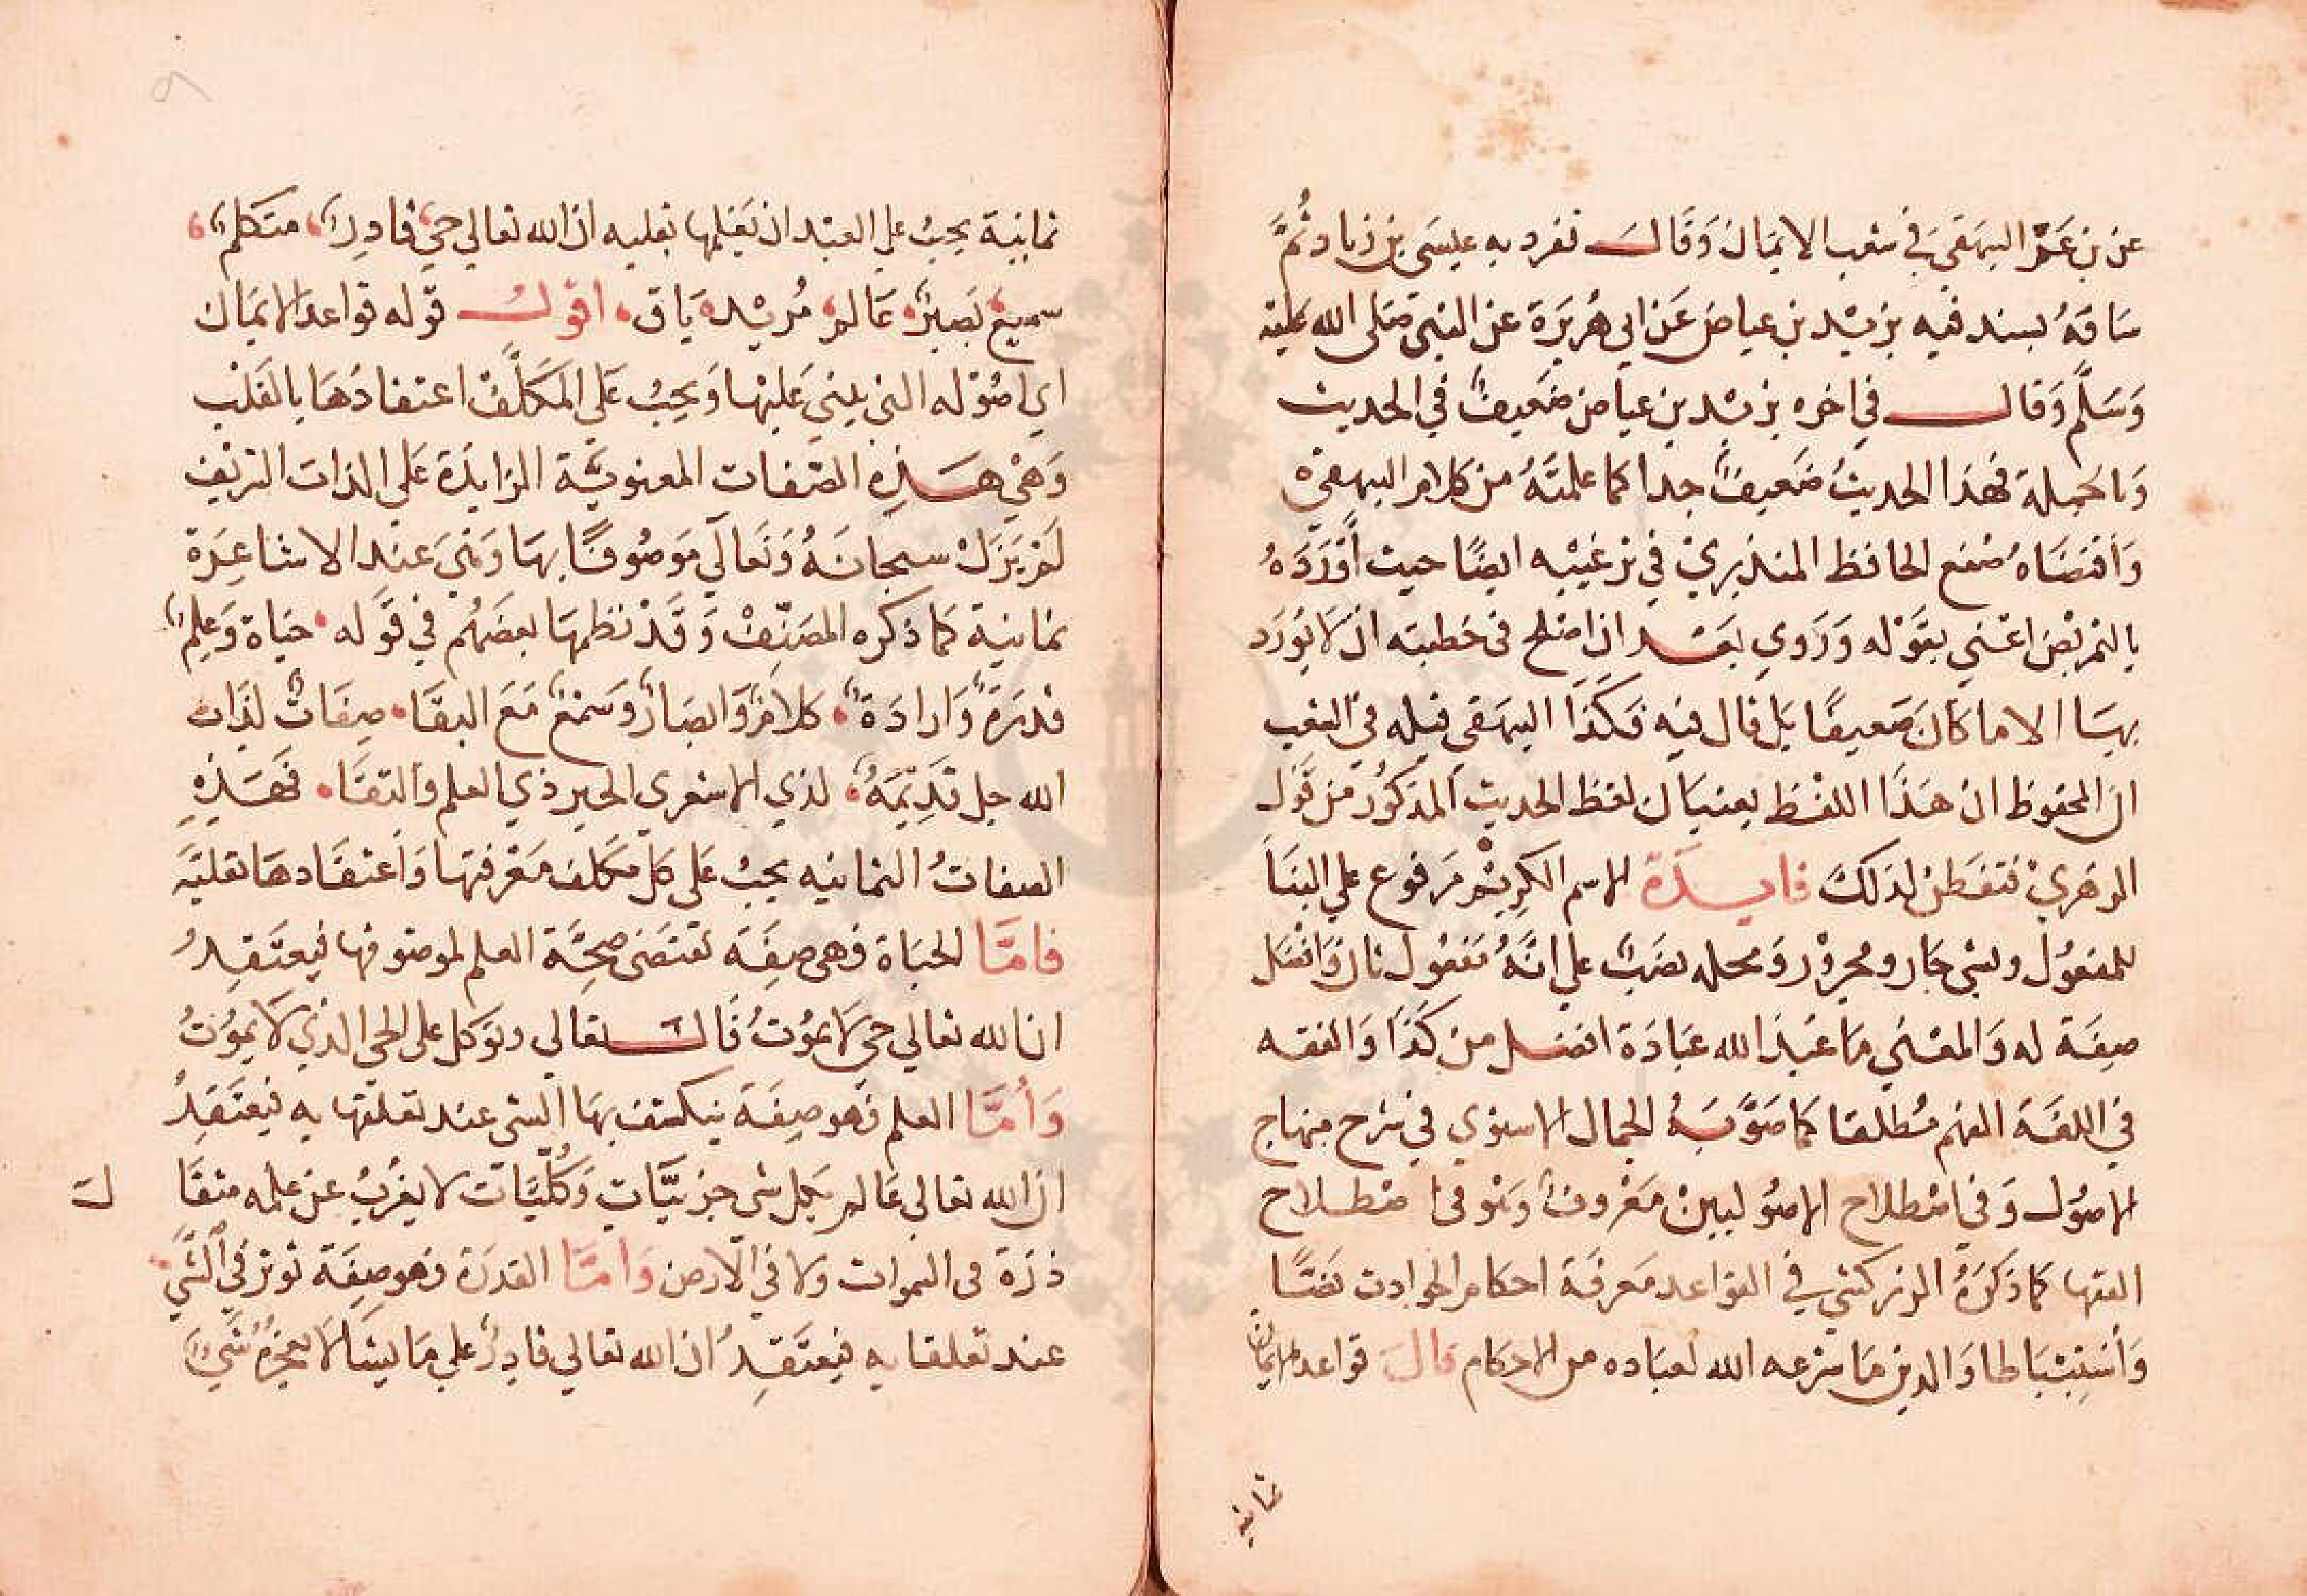 عن بن عمر البيهقي في شعب الايمان وقال تفرد به عيسى بن زياد ثم
ساقه بسند فيه يزيد بن عياض عن ابي هريرة عن النبي صلى الله عليه
وسلم وقال في اخره يزيد بن عياض ضعيف في الحديث
وبالجملة فهذا الحديث ضعيف جدا كما علمته من كلام البيهقي
واقتضاه صنع الحافظ المنذري في ترغيبه ايضا حيث اورده
بالتمريض اعني بقوله وروي بعد ان اصلح في خطبته ان لا يورد
بها الا ما كان ضعيفا بل قال فيه فكذا البيهقي قبله في الشعب
ان المحفوظ ان هذا اللفظ يعنيان لفظ الحديث المذكور من قول
الزهري فتفطن لذلك فايدة الاسم الكريم مرفوع علي البنا
للمفعول وبشي جار ومجرور ومحله نصب علي انه مفعول ثان وافضل
صفة له والمعني ما عبد الله عبادة افضل من كذا والفقه
في اللغة الفهم مطلقا كما صوبه الجمال الاسنوي في شرح منهاج
الاصول وفي اصطلاح الاصوليين معروف وهو في اصطلاح
الفقها كما ذكره الزركشي في القواعد معرفة احكام الحوادث نصا
واستنباطا والدين ما شرعه الله لعباده من الاحكام قال قواعد الايمان
ثمانية
ثمانية يجب علي العبد ان يعلمها بقلبه ان الله تعالي حي قادر متكلم
سميع بصير عالم مريد باق اقول قوله قواعد الايمان
اي اصوله التي يبني عليها ويجب على المكلف اعتقادها بالقلب
وهي هذه الصفات المعنوية الزايدة على الذات التي
لم يزل سبحانه وتعالي موصوفا بها وهي عند الاشاعرة
ثمانية كما ذكره المصنف وقد نظمها بعضهم في قوله حياة وعلم
قدرة وارادة كلام وابصار وسمع مع البقا صفات لذات
الله جل قديمة لذي الاشعري الحبر ذي العلم والتقا فهذه
الصفات الثمانيه يجب على كل مكلف معرفتها واعتقادها بقلبه
فامّا الحياة فهي صفة تقتضي صحة العلم لموصوفها فيعتقد
ان الله تعالي حي لا يموت قال تعالي وتوكل على الحي الذي لا يموت
وأمّا العلم فهو صفة ينكشف بها الشي عند تعلقها به فيعتقد
ان الله تعالي عالم بكل شي جزييات وكليات لا يعزب عن علمه مثقا
ل
ذرة في السموات ولا في الارض وأمّا القدرة فهو صفة توثر في الشي
عند تعلقها به فيعتقد ان الله تعالي قادر علي ما يشا لا يعجزه شي